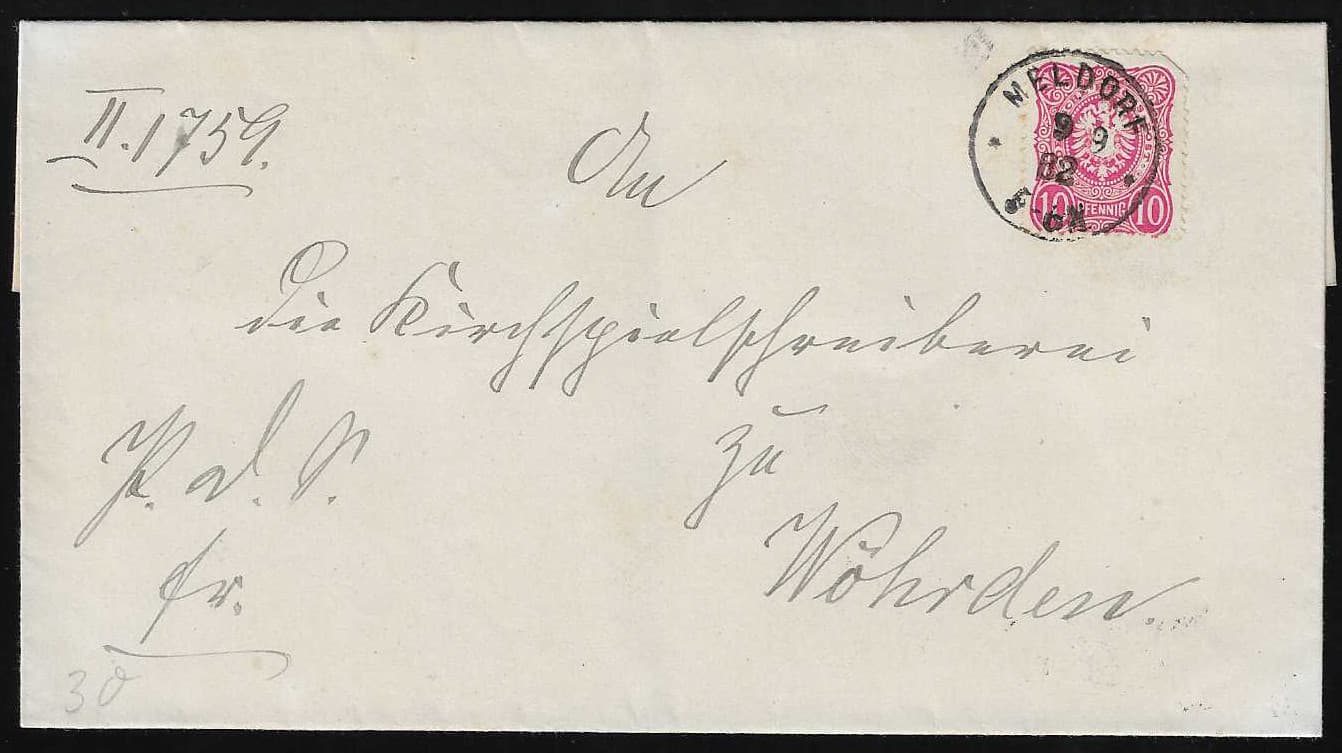 II. 1759.
An
die Kirchspielschreiberei
zu
Wöhrden.
P. d. S.
fr.
30
MELDORF
9 9
82
10 PFENNIG 10